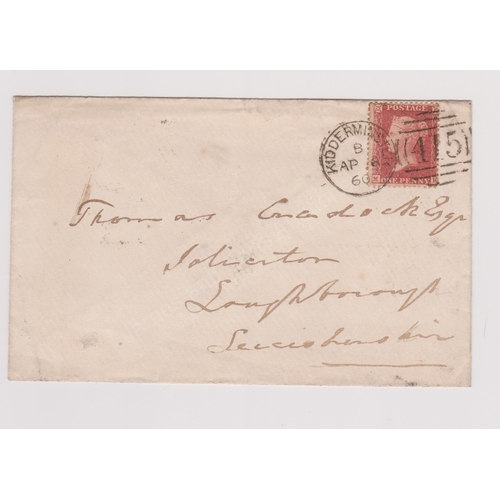 POSTAGE
KIDDERMINS
B
AP
60
415
ONE PENNY
Thomas Cradock Esqr
Solicitor
Loughborough
Leicestershire